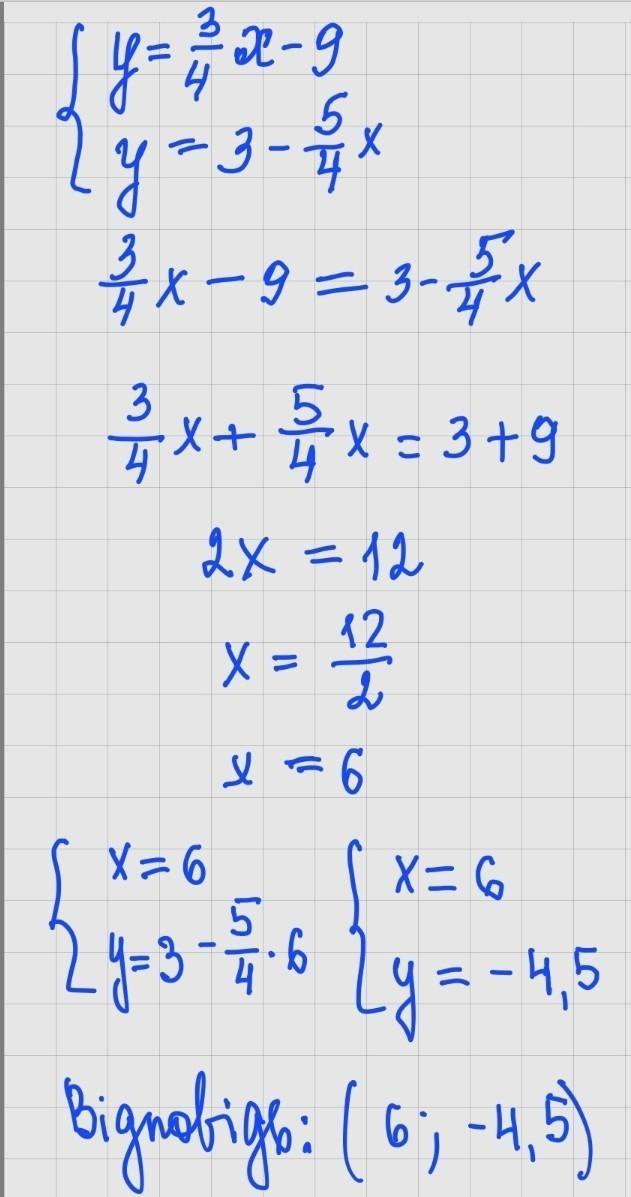 y = 3/4 x - 9
y = 3 - 5/4 x
3/4 x - 9 = 3 - 5/4 x
3/4 x + 5/4 x = 3 + 9
2x = 12
x = 12/2
x = 6
x = 6 x = 6
y = 3 - 5/4 · 6 y = -4,5
Відповідь: (6; -4,5)